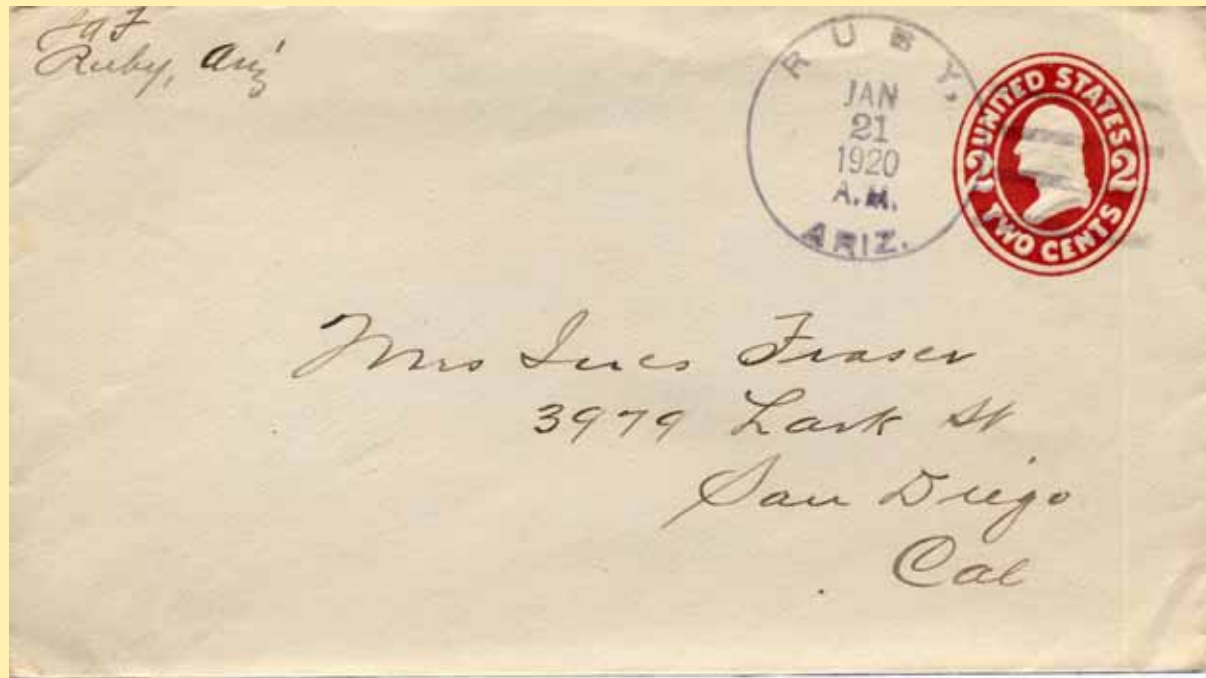 Ruby, Ariz
RUBY,
JAN
21
1920
A.M.
ARIZ.
UNITED STATES
2 2
TWO CENTS
Mrs Ines Fraser
3979 Lark St
San Diego
Cal